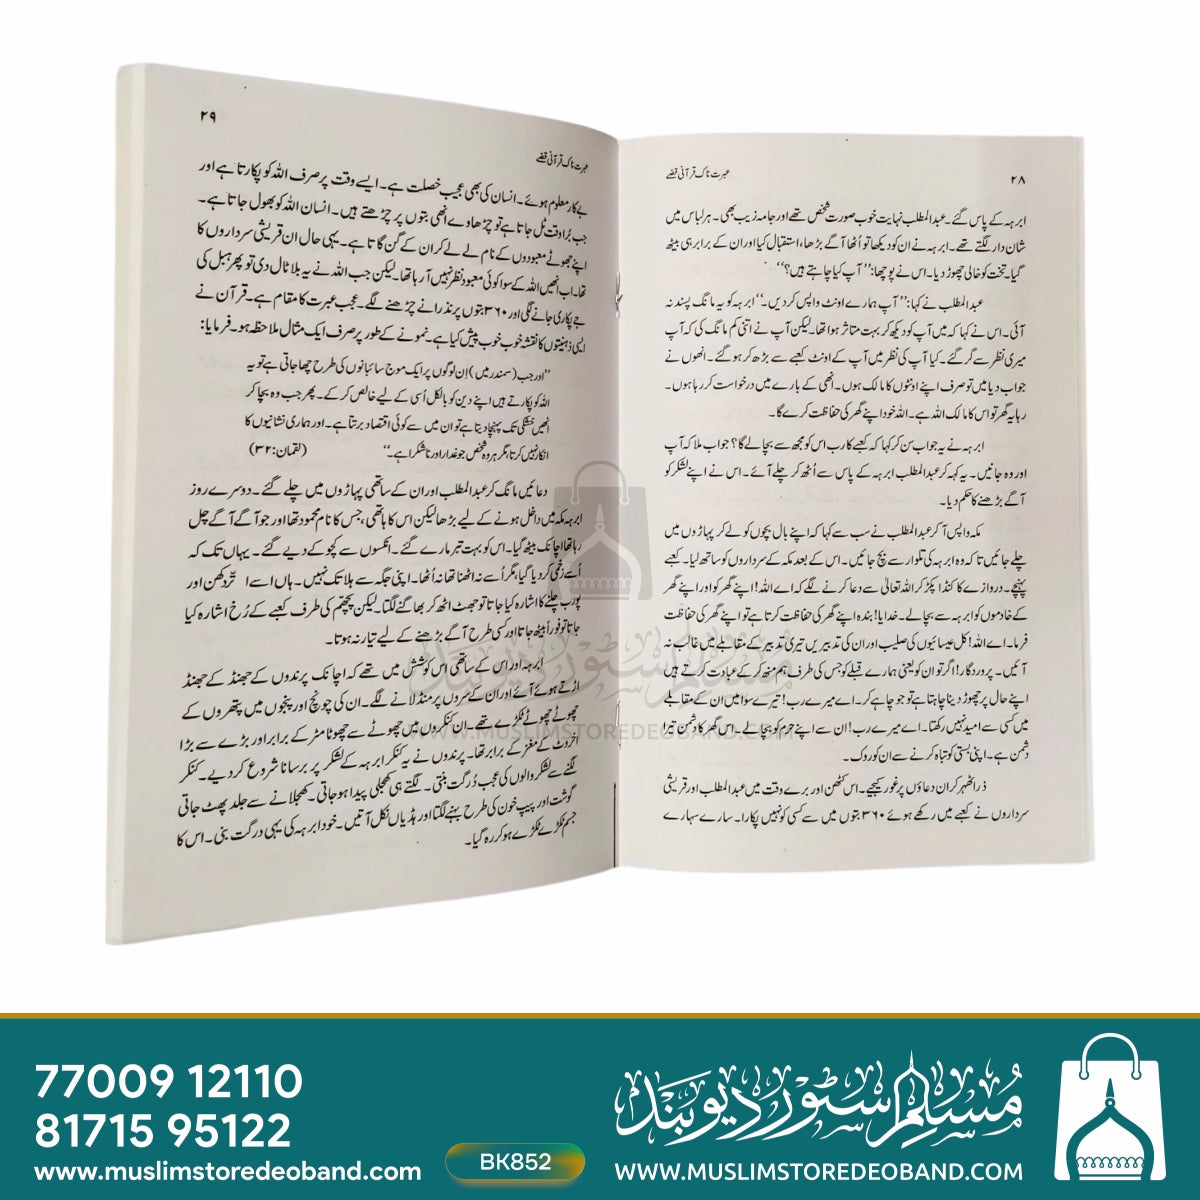 ۲۸
عبرت ناک قرآنی قصے
ابرہہ کے پاس گئے۔ عبدالمطلب نہایت خوب صورت شخص تھے اور جامہ زیب بھی۔ ہر لباس میں
شان دار لگتے تھے۔ ابرہہ نے ان کو دیکھا تو اُٹھا آگے بڑھا، استقبال کیا اور ان کے برابر ہی بیٹھ
گیا۔ تخت کو خالی چھوڑ دیا۔ اس نے پوچھا: ’’آپ کیا چاہتے ہیں؟‘‘
عبدالمطلب نے کہا: ’’آپ ہمارے اونٹ واپس کر دیں۔‘‘ ابرہہ کو یہ مانگ پسند نہ
آئی۔ اس نے کہا کہ میں آپ کو دیکھ کر بہت متاثر ہوا تھا۔ لیکن آپ نے اتنی کم مانگ کی کہ آپ
میری نظر سے گر گئے۔ کیا آپ کی نظر میں آپ کے اونٹ کعبے سے بڑھ کر ہو گئے۔ انھوں نے
جواب دیا میں تو صرف اپنے اونٹوں کا مالک ہوں۔ انھی کے بارے میں درخواست کر رہا ہوں۔
رہا یہ گھر تو اس کا مالک اللہ ہے۔ اللہ خود اپنے گھر کی حفاظت کرے گا۔
ابرہہ نے یہ جواب سن کر کہا کہ کعبے کا رب اس کو مجھ سے بچا لے گا؟ جواب ملا کہ آپ
اور وہ جانیں۔ یہ کہہ کر عبدالمطلب ابرہہ کے پاس سے اُٹھ کر چلے آئے۔ اس نے اپنے لشکر کو
آگے بڑھنے کا حکم دیا۔
مکہ واپس آ کر عبدالمطلب نے سب سے کہا کہ اپنے بال بچوں کو لے کر پہاڑوں میں
چلے جائیں تاکہ وہ ابرہہ کی تلوار سے بچ جائیں۔ اس کے بعد مکہ کے سرداروں کو ساتھ لیا۔ کعبے
پہنچے۔ دروازے کا کنڈا پکڑ کر اللہ تعالیٰ سے دعا کرنے لگے کہ اے اللہ! اپنے گھر کو اور اپنے گھر
کے خادموں کو ابرہہ سے بچا لے۔ خدایا! بندہ اپنے گھر کی حفاظت کرتا ہے تو اپنے گھر کی حفاظت
فرما۔ اے اللہ! کل عیسائیوں کی صلیب اور ان کی تدبیریں تیری تدبیر کے مقابلے میں غالب نہ
آئیں۔ پروردگار! اگر تو ان کو یعنی ہمارے قبلے کو جس کی طرف ہم منھ کر کے عبادت کرتے ہیں
اپنے حال پر چھوڑ دینا چاہتا ہے تو جو چاہے کر۔ اے میرے رب! تیرے سوا میں ان کے مقابلے
میں کسی سے امید نہیں رکھتا۔ اے میرے رب! ان سے اپنے حرم کو بچا لے۔ اس گھر کا دشمن تیرا
دشمن ہے۔ اپنی بستی کو تباہ کرنے سے ان کو روک۔
ذرا ٹھہر کر ان دعاؤں پر غور کیجیے۔ اس کٹھن اور برے وقت میں عبدالمطلب اور قریشی
سرداروں نے کعبے میں رکھے ہوئے ۳۶۰ بتوں میں سے کسی کو نہیں پکارا۔ سارے سہارے
۲۹
عبرت ناک قرآنی قصے
بے کار معلوم ہوئے۔ انسان کی بھی عجیب خصلت ہے۔ ایسے وقت پر صرف اللہ کو پکارتا ہے اور
جب بُرا وقت ٹل جاتا ہے تو چڑھاوے انھی بتوں پر چڑھتے ہیں۔ انسان اللہ کو بھول جاتا ہے۔
اپنے جھوٹے معبودوں کے نام لے لے کر ان کے گن گاتا ہے۔ یہی حال ان قریشی سرداروں کا
تھا۔ اب انھیں اللہ کے سوا کوئی معبود نظر نہیں آ رہا تھا۔ لیکن جب اللہ نے یہ بلا ٹال دی تو پھر ہبل کی
جے پکاری جانے لگی اور ۳۶۰ بتوں پر نذرانے چڑھنے لگے۔ عجب عبرت کا مقام ہے۔ قرآن نے
ایسی ذہنیتوں کا نقشہ خوب خوب پیش کیا ہے۔ نمونے کے طور پر صرف ایک مثال ملاحظہ ہو۔ فرمایا:
’’اور جب (سمندر میں) اِن لوگوں پر ایک موج سائبانوں کی طرح چھا جاتی ہے تو یہ
اللہ کو پکارتے ہیں اپنے دین کو بالکل اُسی کے لیے خالص کر کے۔ پھر جب وہ بچا کر
انھیں خشکی تک پہنچا دیتا ہے تو ان میں سے کوئی اقتصاد برتتا ہے۔ اور ہماری نشانیوں کا
انکار نہیں کرتا، مگر ہر وہ شخص جو غدار اور ناشکرا ہے۔‘‘ (لقمان: ۳۲)
دعائیں مانگ کر عبدالمطلب اور ان کے ساتھی پہاڑوں میں چلے گئے۔ دوسرے روز
ابرہہ مکہ میں داخل ہونے کے لیے بڑھا لیکن اس کا ہاتھی، جس کا نام محمود تھا اور جو آگے آگے چل
رہا تھا اچانک بیٹھ گیا۔ اس کو بہت تیر مارے گئے۔ آنکسوں سے کچوکے دیے گئے۔ یہاں تک کہ
اُسے زخمی کر دیا گیا، مگر اُسے نہ اٹھنا تھا نہ اُٹھا۔ اپنی جگہ سے ہلا تک نہیں۔ ہاں اسے اتّر دکھن اور
پورب چلنے کا اشارہ کیا جاتا تو جھٹ اٹھ کر بھاگنے لگتا۔ لیکن پچھّم کی طرف کعبے کے رُخ اشارہ کیا
جاتا تو فوراً بیٹھ جاتا اور کسی طرح آگے بڑھنے کے لیے تیار نہ ہوتا۔
ابرہہ اور اس کے ساتھی اس کوشش میں تھے کہ اچانک پرندوں کے جھنڈ کے جھنڈ
اڑتے ہوئے آئے اور ان کے سروں پر منڈلانے لگے۔ ان کی چونچ اور پنجوں میں پتھروں کے
چھوٹے چھوٹے ٹکڑے تھے۔ ان کنکروں میں چھوٹے سے چھوٹا مٹر کے برابر اور بڑے سے بڑا
اخروٹ کے مغز کے برابر تھا۔ پرندوں نے یہ کنکر ابرہہ کے لشکر پر برسانا شروع کر دیے۔ کنکر
لگنے سے لشکر والوں کی عجب دُرگت بنتی۔ لگتے ہی کھجلی پیدا ہو جاتی۔ کھجلانے سے جلد پھٹ جاتی
گوشت اور پیپ خون کی طرح بہنے لگتا اور ہڈیاں نکل آتیں۔ خود ابرہہ کی یہی درگت بنی۔ اس کا
جسم ٹکڑے ٹکڑے ہو کر رہ گیا۔
مسلم سٹور دیوبند
WWW.MUSLIMSTOREDEOBAND.COM
77009 12110
81715 95122
www.muslimstoredeoband.com
BK852
مسلم سٹور دیوبند
WWW.MUSLIMSTOREDEOBAND.COM